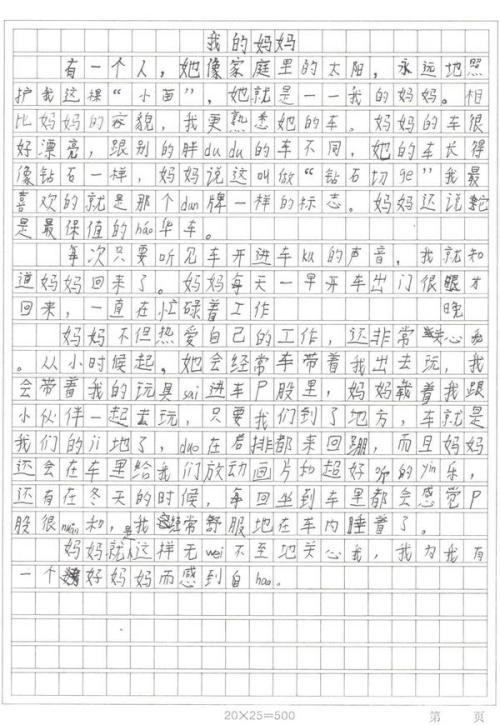 我的妈妈
有一个人，她像家庭里的太阳，永远地照
护我这棵“小苗”，她就是一一我的妈妈。相
比妈妈的容貌，我更熟悉她的车。妈妈的车很
好漂亮，跟别的胖dudu的车不同，她的车长得
像钻石一样，妈妈说这叫做“钻石切ge”我最
喜欢的就是那个dun牌一样的标志。妈妈还说
是最保值的háo华车。
每次只要听见车开进车ku的声音，我就知
道妈妈回来了。妈妈每天一早开车出门很晚才
回来，一直在忙碌着工作
妈妈不但热爱自己的工作，还非常关心我
。从小时候起，她会经常车带着我出去玩，我
会带着我的玩具sai进车P股里，妈妈载着我跟
小伙伴一起去玩，只要我们到了地方，车就是
我们的ji地了，duo在后排都来回蹦，而且妈妈
还会在车里给我们放动画片和超好听的yin乐，
还有在冬天的时候，每回坐到车里都会感觉P
股很nuǎn和，是我经常舒服地在车内睡着了。
妈妈就这样无wei不至地关心我，我为我有
一个好妈妈而感到自hao。
20×25=500
第 页